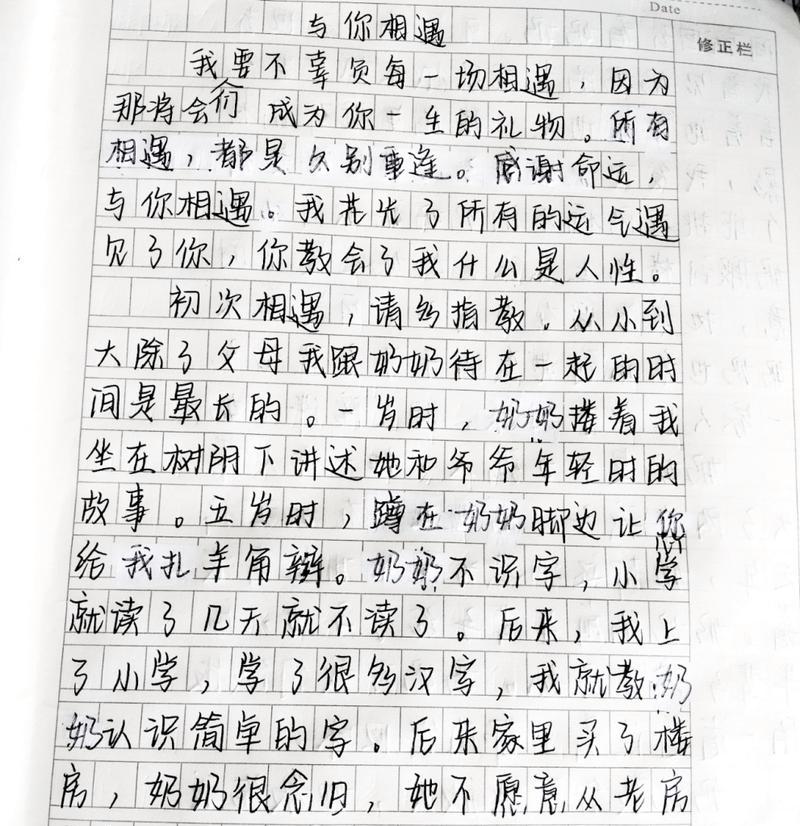 Date
修正栏
与你相遇
我要不辜负每一场相遇，因为
那将会成为你一生的礼物。所有
相遇，都是久别重逢。感谢命运，
与你相遇。我花光了所有的运气遇
见了你，你教会了我什么是人性。
初次相遇，请多指教。从小到
大除了父母我跟奶奶待在一起的时
间是最长的。一岁时，奶奶搂着我
坐在树阴下讲述她和爷爷年轻时的
故事。五岁时，蹲在奶奶脚边让你
给我扎羊角辫。奶奶不识字，小学
就读了几天就不读了。后来，我上
了小学，学了很多汉字，我就教奶
奶认识简单的字。后来家里买了楼
房，奶奶很念旧，她不愿意从老房